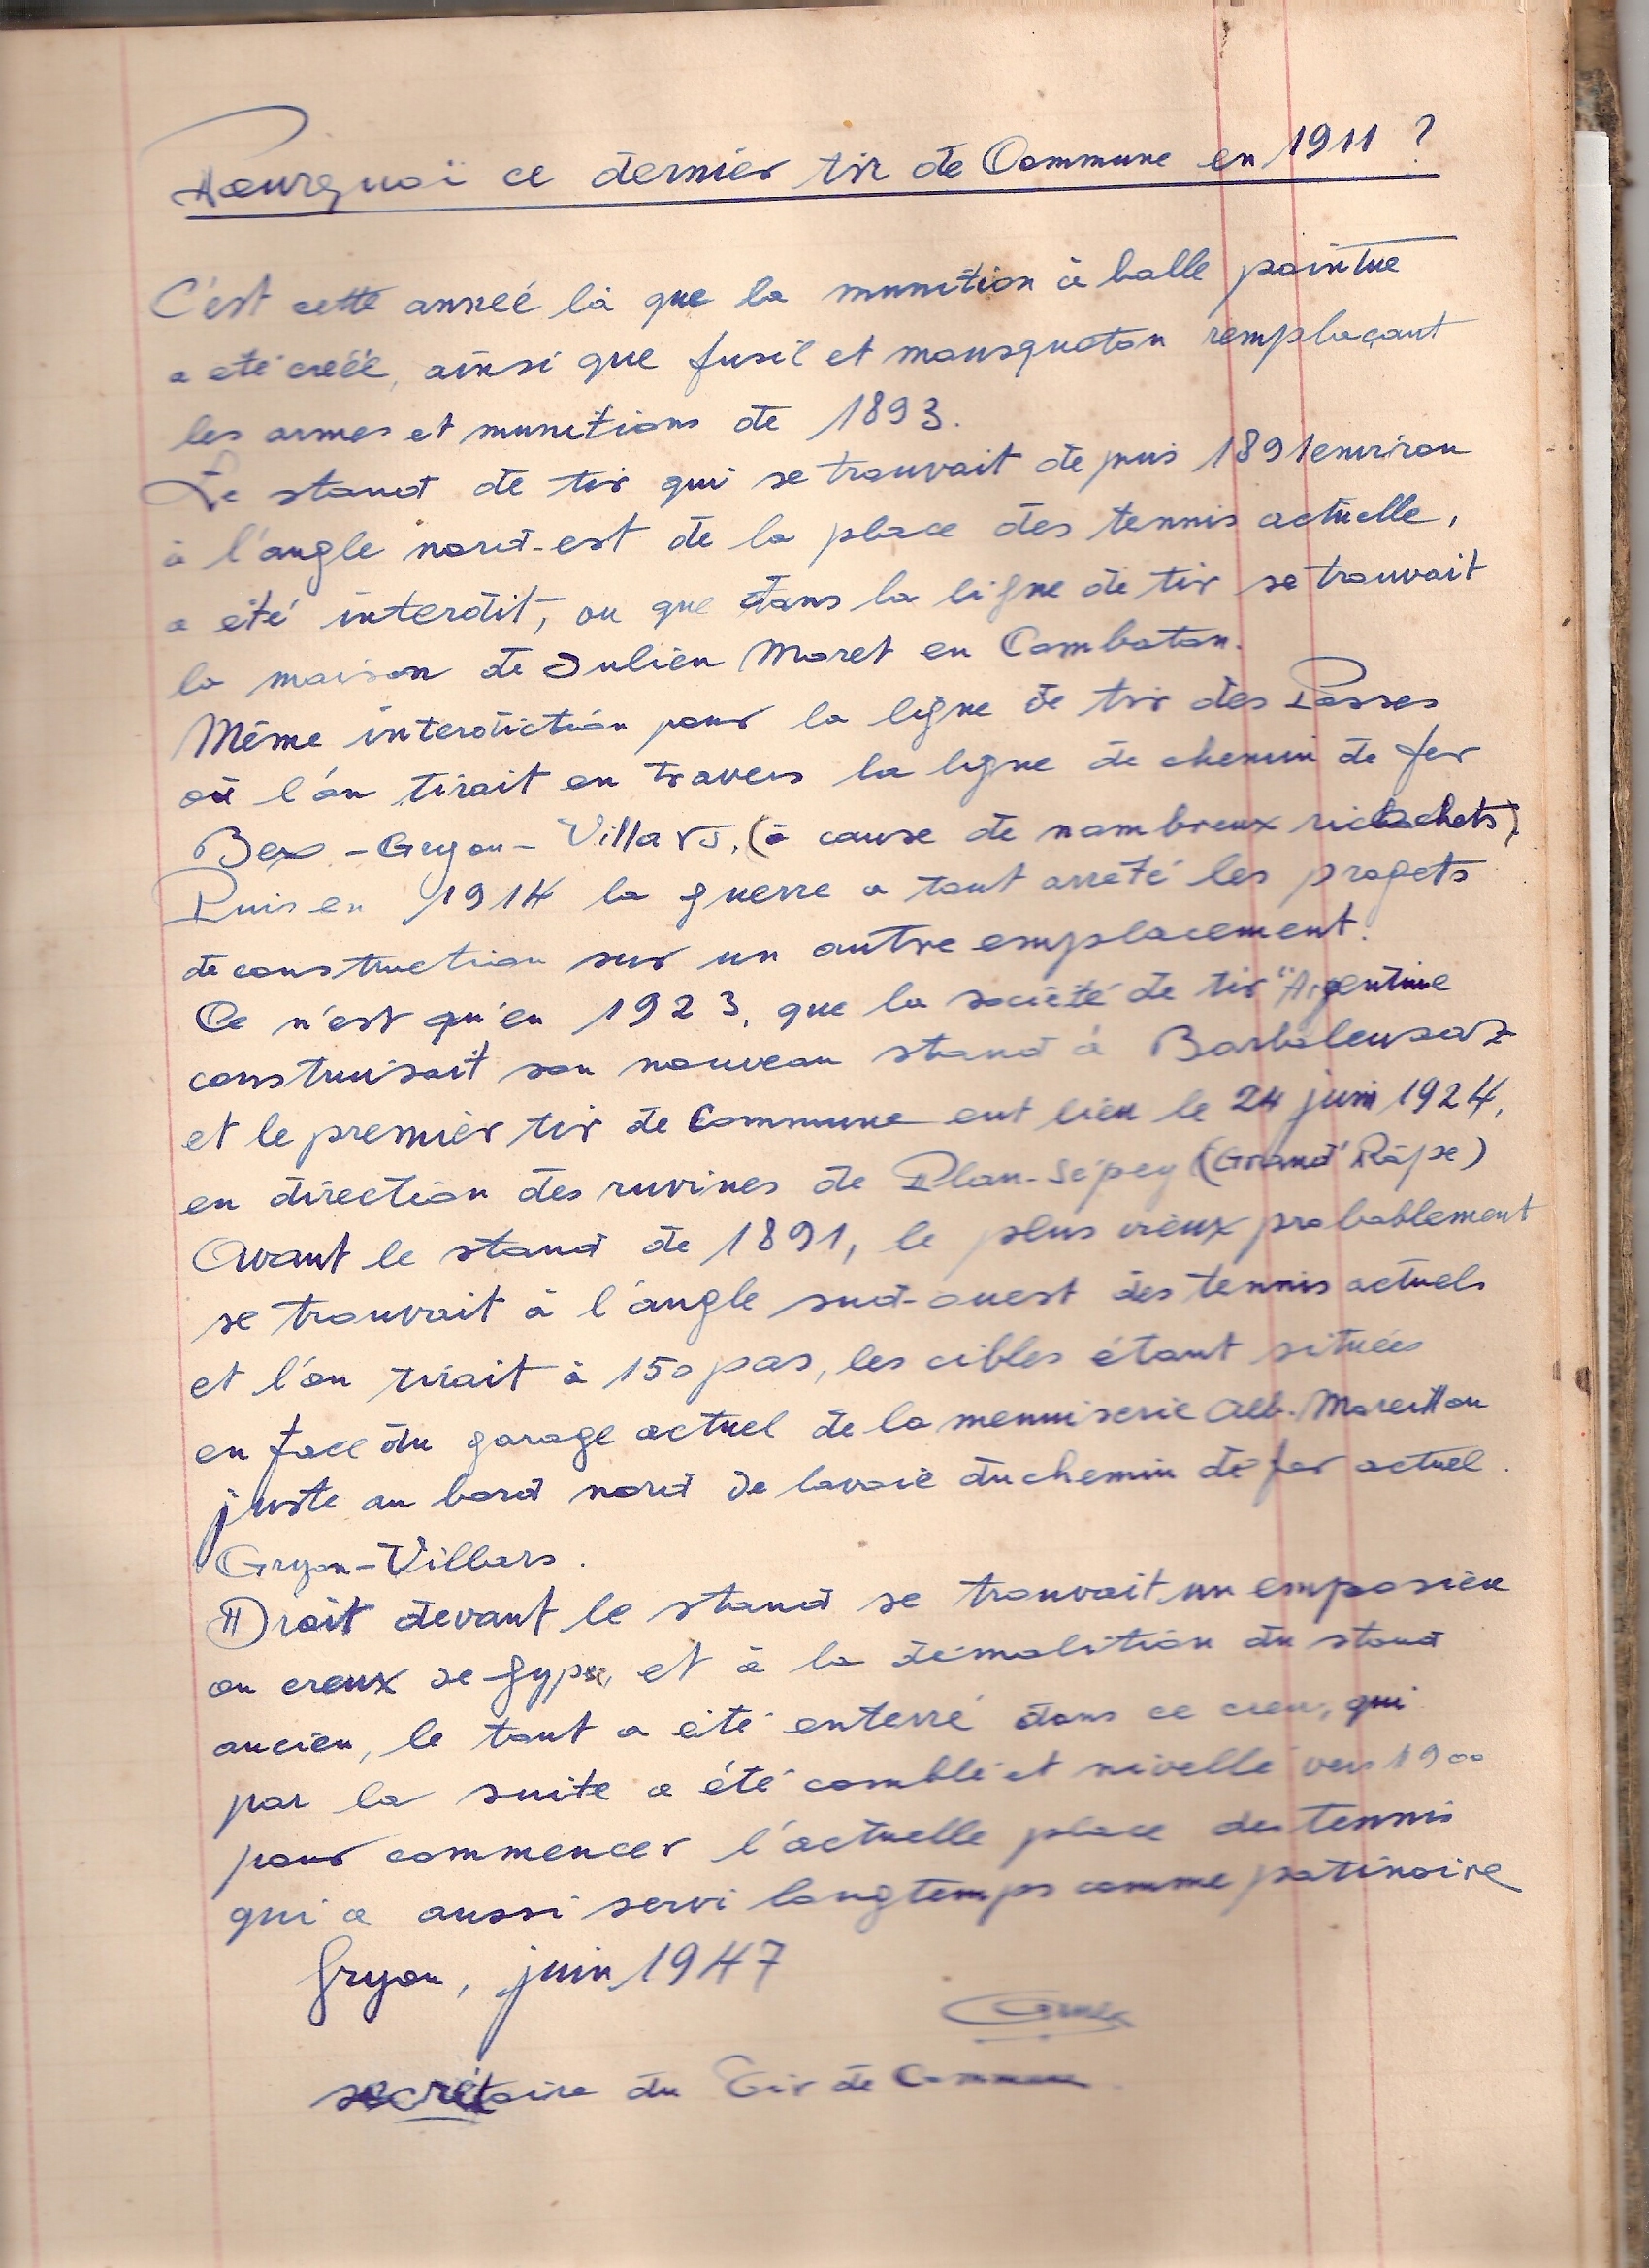 Pourquoi ce dernier tir de Commune en 1911 ?
C'est cette année là que la munition à balle pointue
a été créée, ainsi que fusil et mousqueton remplaçant
les armes et munitions de 1893.
Le stand de tir qui se trouvait depuis 1891 environ
à l'angle nord-est de la place des tennis actuelle,
a été interdit, vu que dans la ligne de tir se trouvait
la maison de Julien Moret en Combaton.
Même interdiction pour la ligne de tir des Passes
où l'on tirait en travers la ligne de chemin de fer
Bex-Gryon-Villars, (à cause de nombreux ricochets).
Puis en 1914 la guerre a tout arrêté les progets
de construction sur un autre emplacement.
Ce n'est qu'en 1923, que la société de tir "Argentine
construisait son nouveau stand à Barboleusaz
et le premier tir de Commune eut lieu le 24 juin 1924,
en direction des ruvines de Plan-Sépey (Grand' Râpe)
Avant le stand de 1891, le plus vieux probablement
se trouvait à l'angle sud-ouest des tennis actuels
et l'on tirait à 150 pas, les cibles étant situées
en face du garage actuel de la menuiserie Alb. Moreillon
juste au bord nord de la voie du chemin de fer actuel.
Gryon-Villars.
Droit devant le stand se trouvait un emposieu
ou creux de gypse, et à la démolition du stand
ancien, le tout a été enterré dans ce creu, qui
par la suite a été comblé et nivellé vers 1900
pour commencer l'actuelle place des tennis
qui a aussi servi longtemps comme patinoire
Gryon, juin 1947
secrétaire du Tir de Commune.